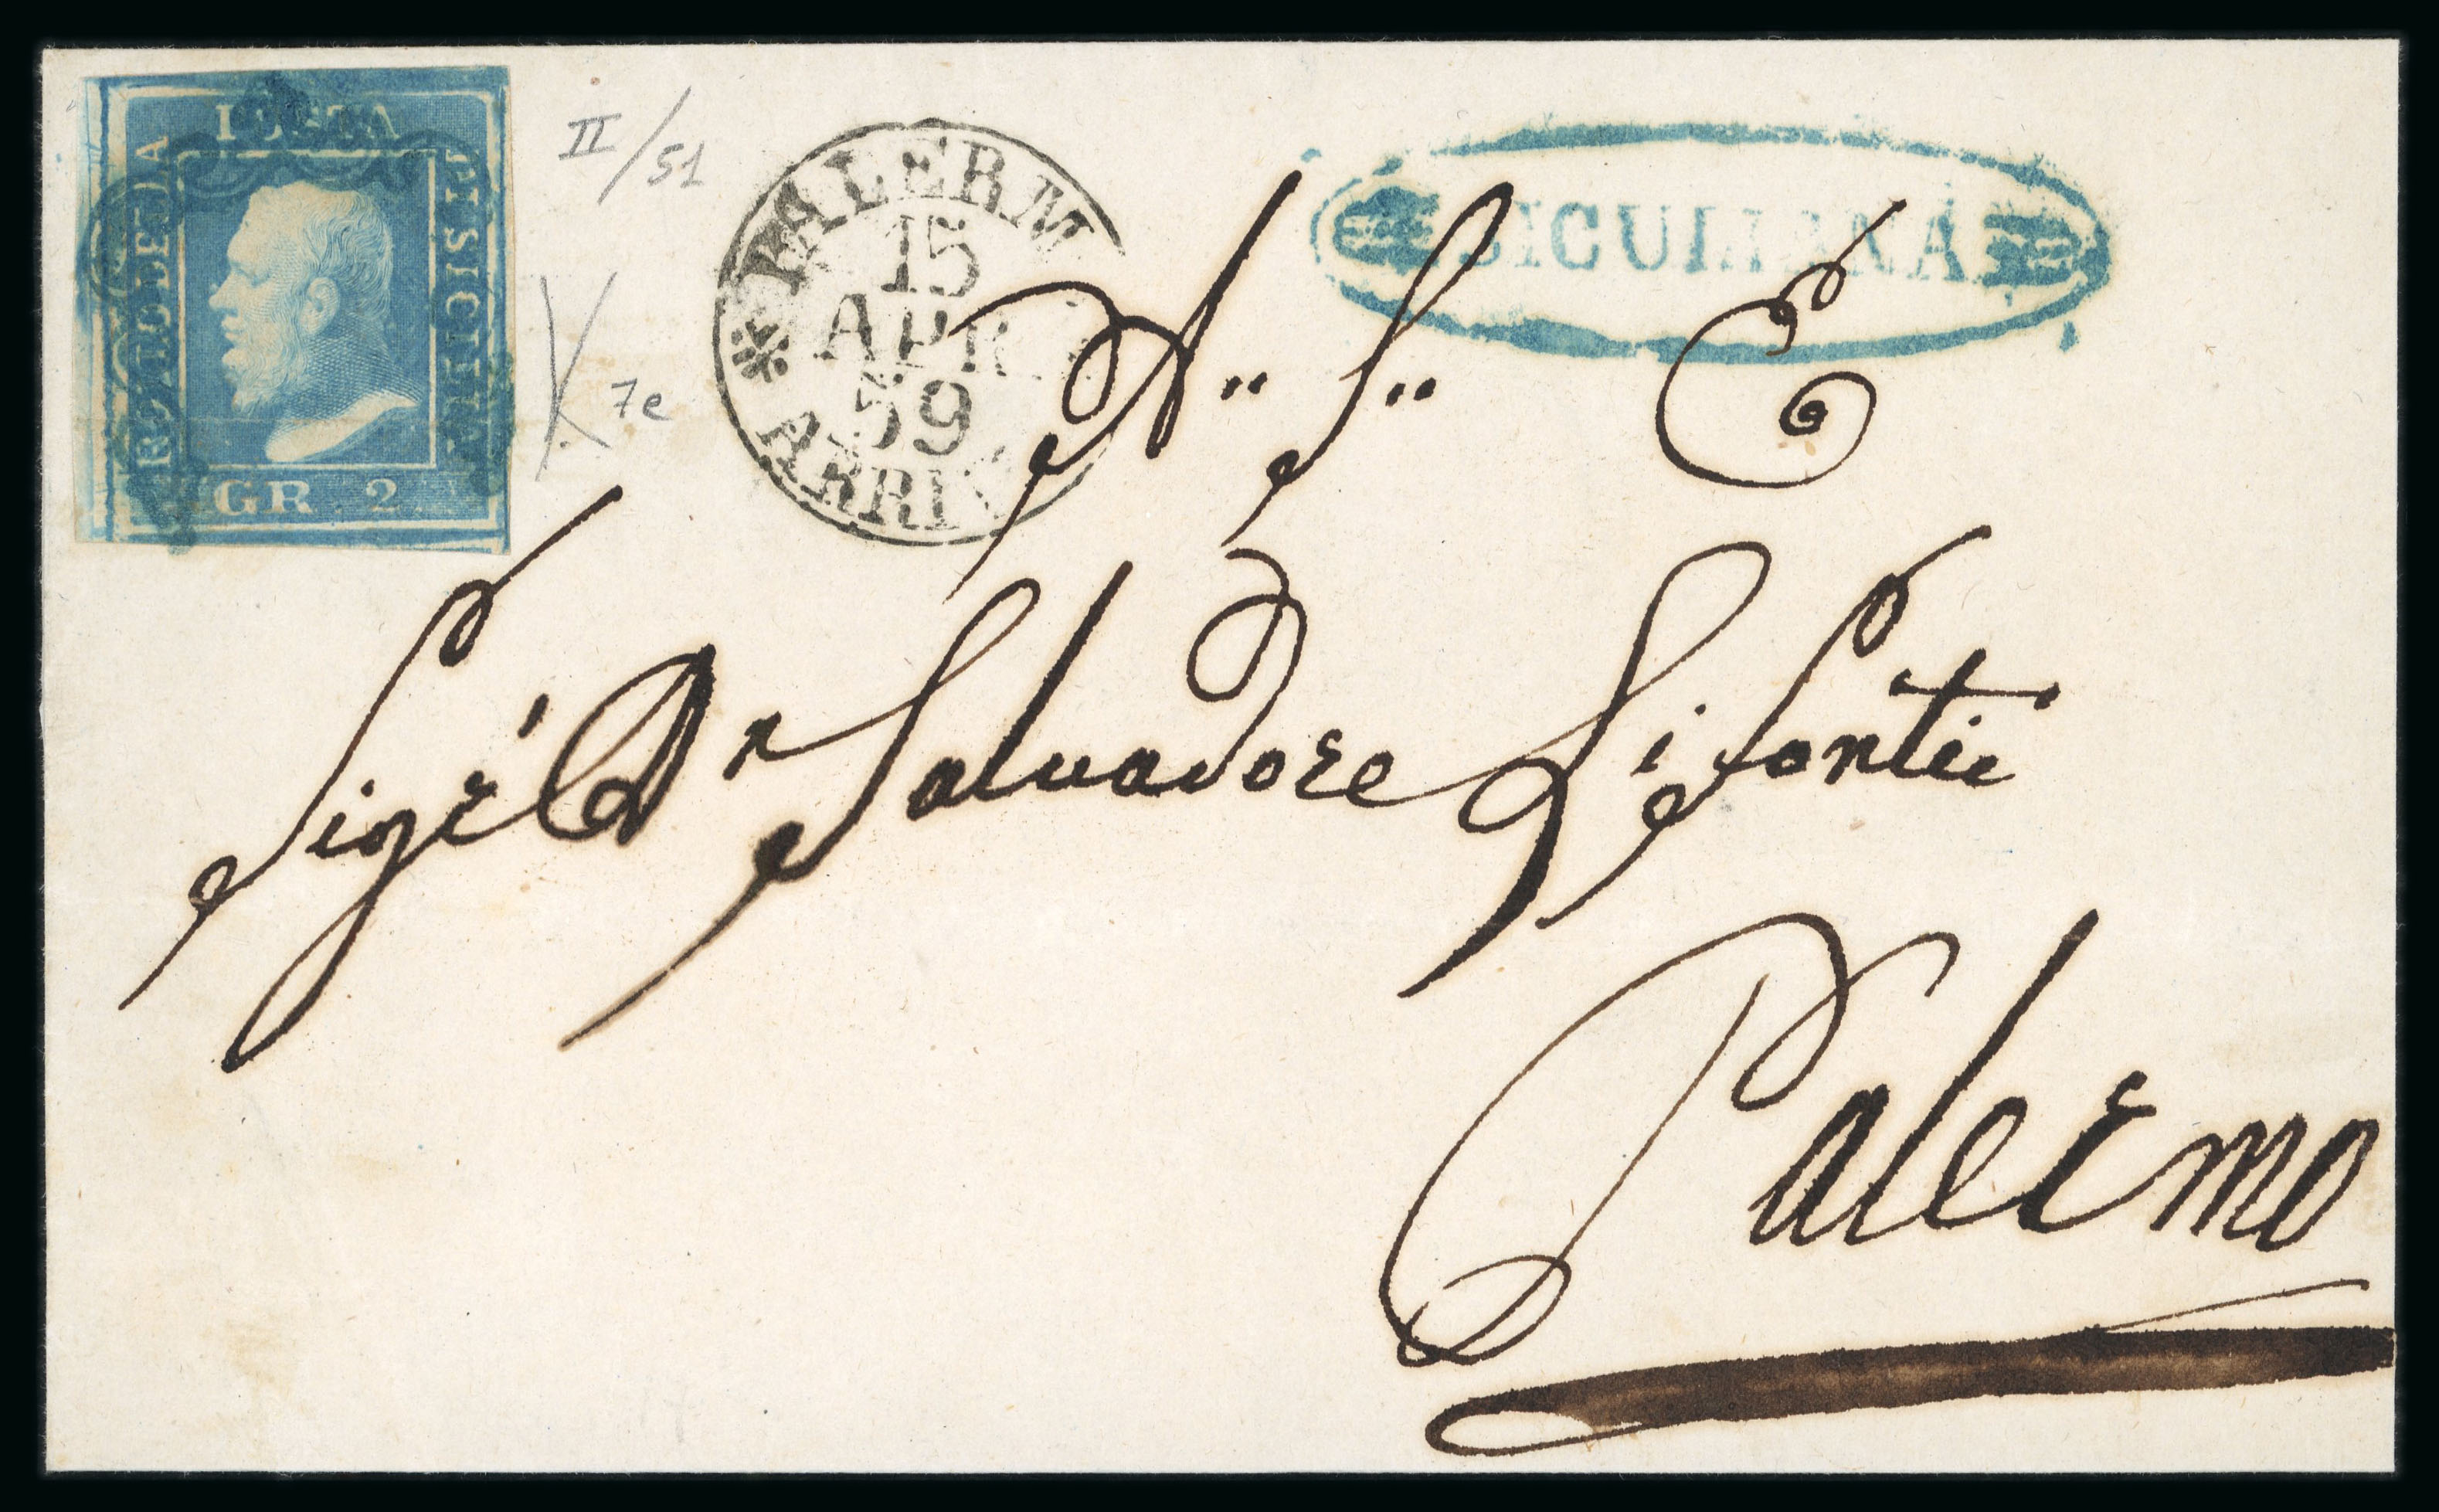 POSTA
BOLLO DELLA
DI SICILIA
GR. 2.
II/51
7e
PALERM
15
APR
59
ARRIV
SICULIANA
A.. S.. E
Sigr. Dn Salvadore
Palermo